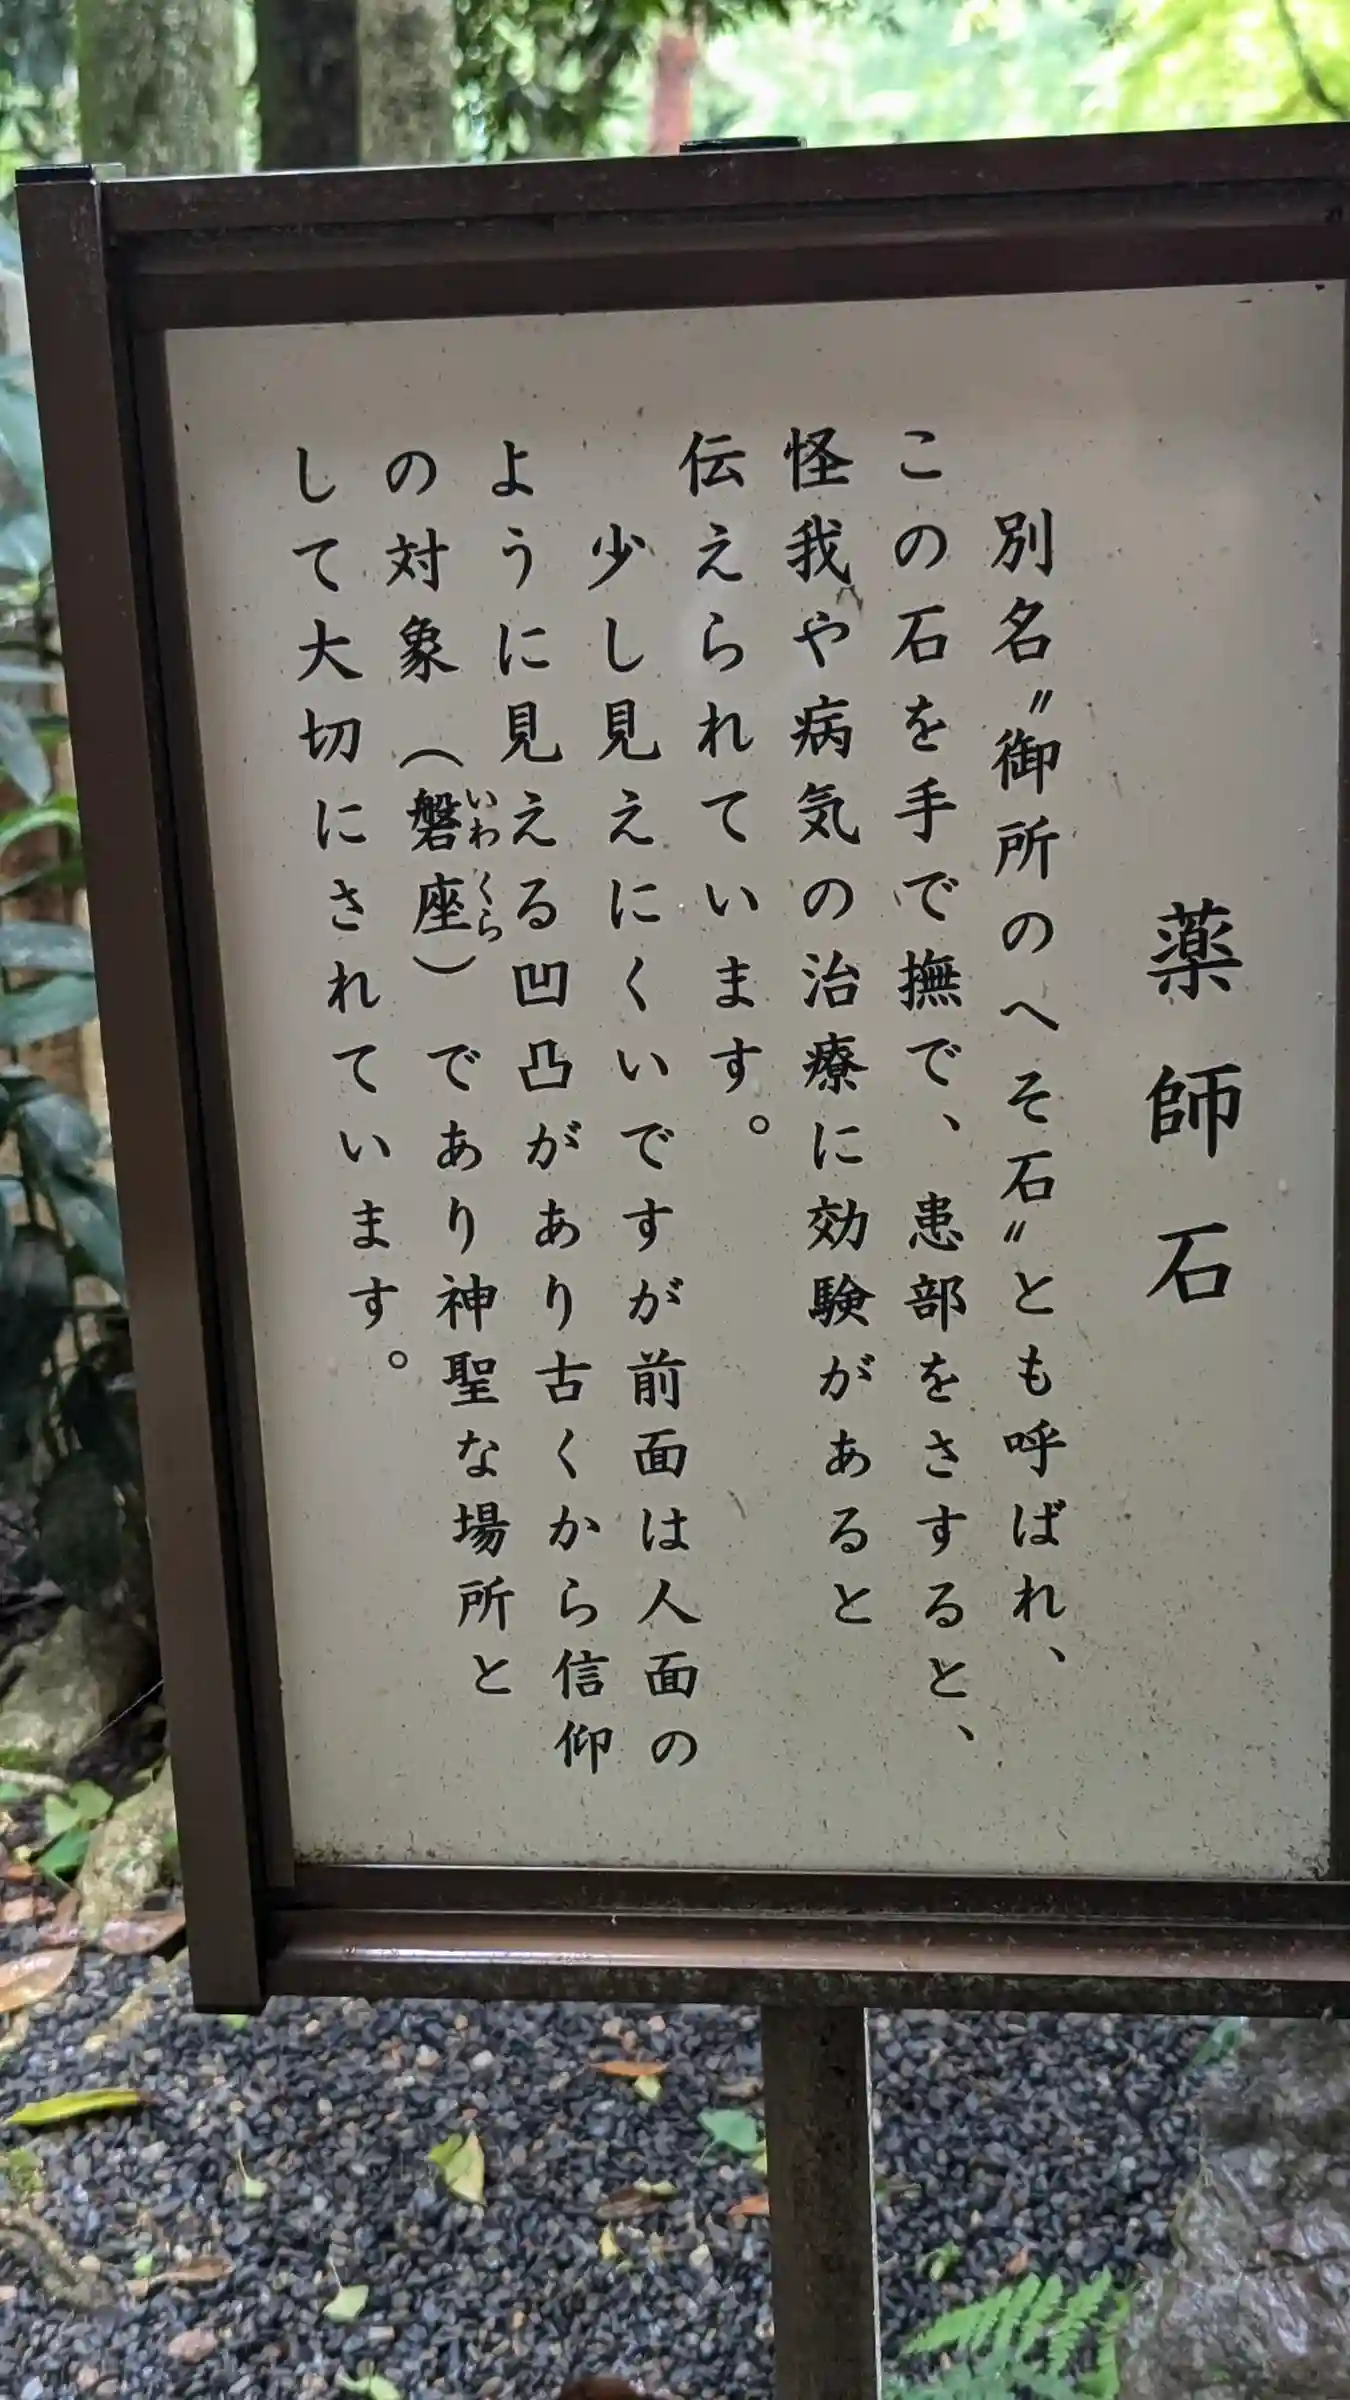 薬師石
別名〝御所のへそ石〟とも呼ばれ、
この石を手で撫で、患部をさすると、
怪我や病気の治療に効験があると
伝えられています。
少し見えにくいですが前面は人面の
ように見える凹凸があり古くから信仰
の対象（磐座）であり神聖な場所と
いわくら
して大切にされています。